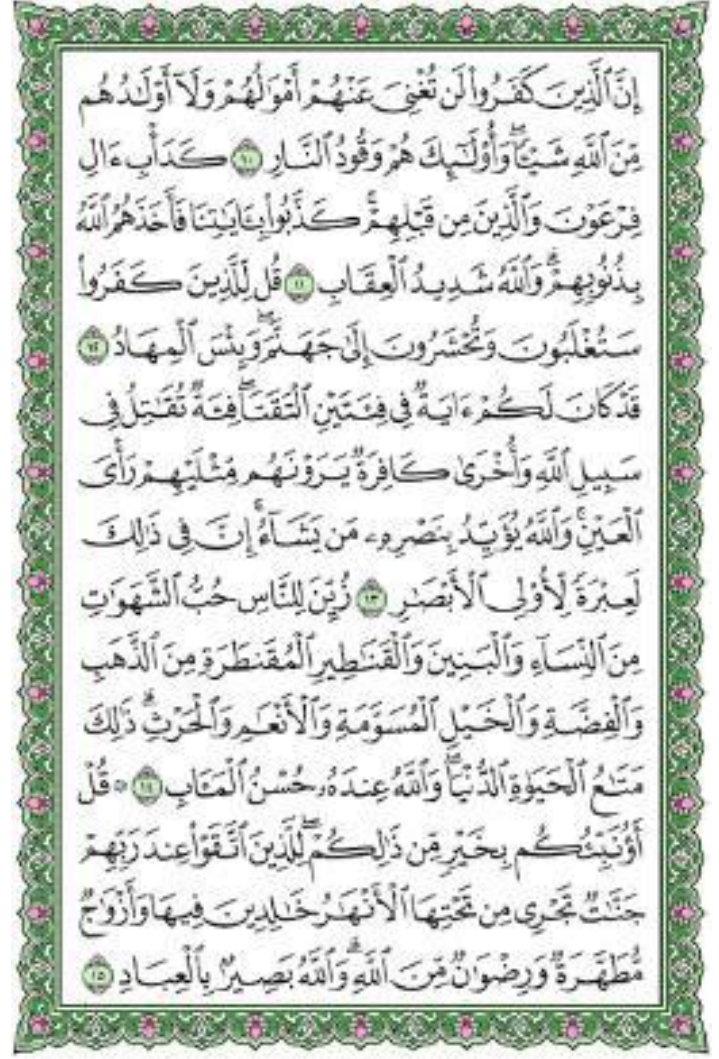 إِنَّ ٱلَّذِينَ كَفَرُوا۟ لَن تُغْنِىَ عَنْهُمْ أَمْوَٰلُهُمْ وَلَآ أَوْلَـٰدُهُم
مِّنَ ٱللَّهِ شَيْـًٔا ۖ وَأُو۟لَـٰٓئِكَ هُمْ وَقُودُ ٱلنَّارِ ١٠ كَدَأْبِ ءَالِ
فِرْعَوْنَ وَٱلَّذِينَ مِن قَبْلِهِمْ ۚ كَذَّبُوا۟ بِـَٔايَـٰتِنَا فَأَخَذَهُمُ ٱللَّهُ
بِذُنُوبِهِمْ ۗ وَٱللَّهُ شَدِيدُ ٱلْعِقَابِ ١١ قُل لِّلَّذِينَ كَفَرُوا۟
سَتُغْلَبُونَ وَتُحْشَرُونَ إِلَىٰ جَهَنَّمَ ۚ وَبِئْسَ ٱلْمِهَادُ ١٢
قَدْ كَانَ لَكُمْ ءَايَةٌ فِى فِئَتَيْنِ ٱلْتَقَتَا ۖ فِئَةٌ تُقَـٰتِلُ فِى
سَبِيلِ ٱللَّهِ وَأُخْرَىٰ كَافِرَةٌ يَرَوْنَهُم مِّثْلَيْهِمْ رَأْىَ
ٱلْعَيْنِ ۚ وَٱللَّهُ يُؤَيِّدُ بِنَصْرِهِۦ مَن يَشَآءُ ۗ إِنَّ فِى ذَٰلِكَ
لَعِبْرَةً لِّأُو۟لِى ٱلْأَبْصَـٰرِ ١٣ زُيِّنَ لِلنَّاسِ حُبُّ ٱلشَّهَوَٰتِ
مِنَ ٱلنِّسَآءِ وَٱلْبَنِينَ وَٱلْقَنَـٰطِيرِ ٱلْمُقَنطَرَةِ مِنَ ٱلذَّهَبِ
وَٱلْفِضَّةِ وَٱلْخَيْلِ ٱلْمُسَوَّمَةِ وَٱلْأَنْعَـٰمِ وَٱلْحَرْثِ ۗ ذَٰلِكَ
مَتَـٰعُ ٱلْحَيَوٰةِ ٱلدُّنْيَا ۖ وَٱللَّهُ عِندَهُۥ حُسْنُ ٱلْمَـَٔابِ ١٤ ۞ قُلْ
أَؤُنَبِّئُكُم بِخَيْرٍ مِّن ذَٰلِكُمْ ۚ لِلَّذِينَ ٱتَّقَوْا۟ عِندَ رَبِّهِمْ
جَنَّـٰتٌ تَجْرِى مِن تَحْتِهَا ٱلْأَنْهَـٰرُ خَـٰلِدِينَ فِيهَا وَأَزْوَٰجٌ
مُّطَهَّرَةٌ وَرِضْوَٰنٌ مِّنَ ٱللَّهِ ۗ وَٱللَّهُ بَصِيرٌۢ بِٱلْعِبَادِ ١٥